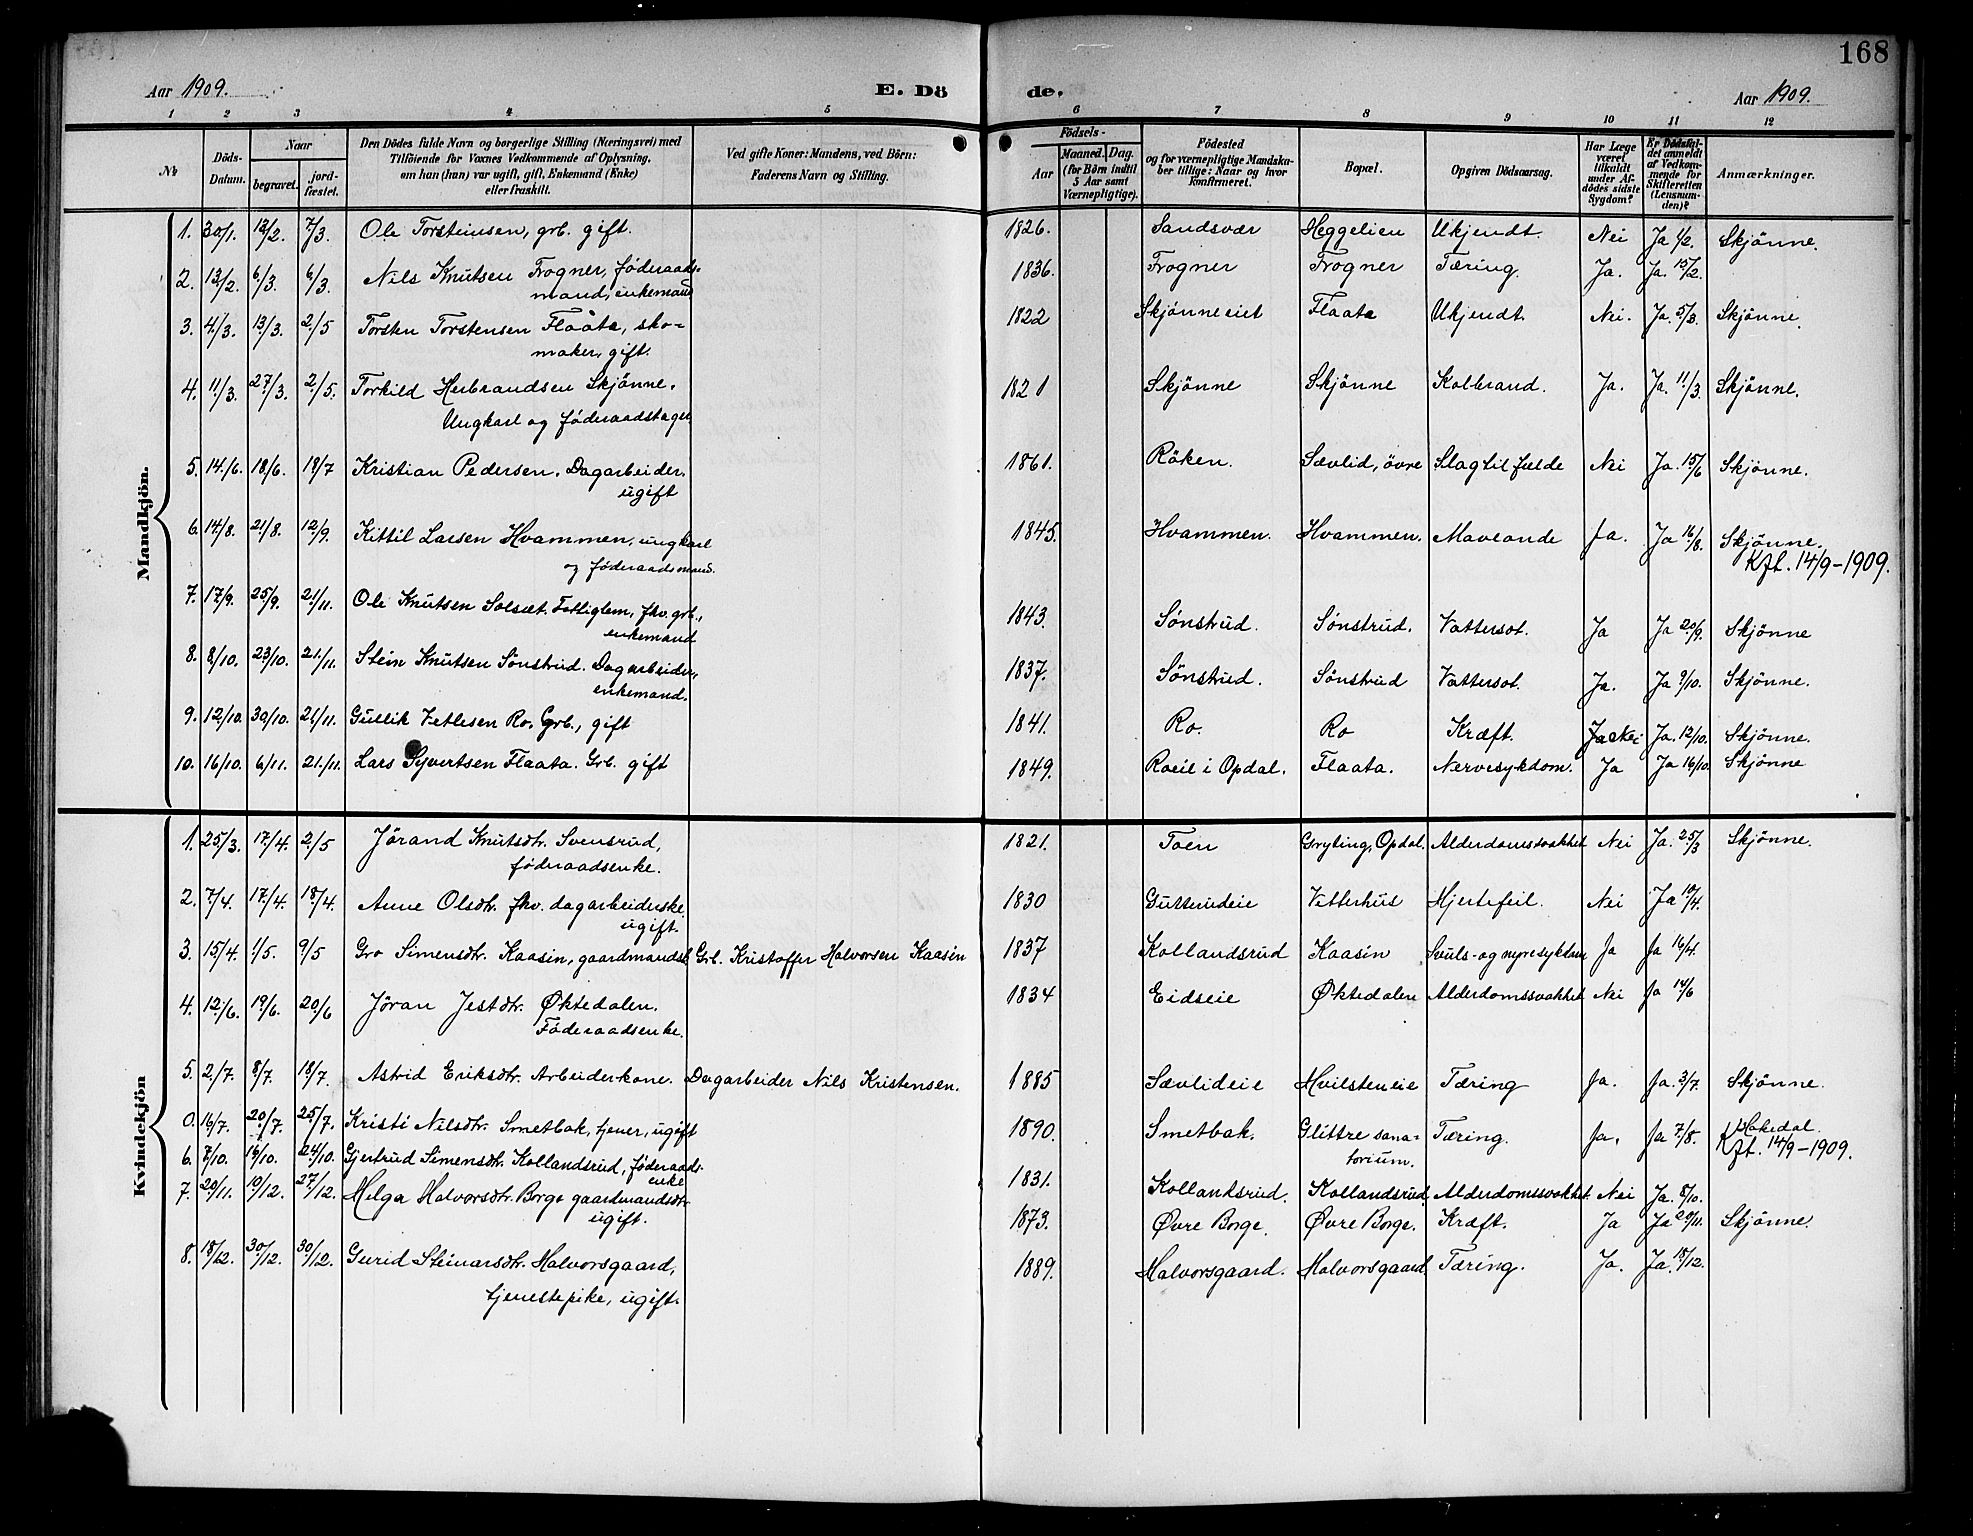 168
Aar 1909. E. Dö de. Aar 1909.
1 2 3 4 5 6 7 8 9 10 11 12
№ Döds-Datum. Naar begravet. jordfæstet. Den Dödes fulde Navn og borgerlige Stilling (Næringsvei) med Tilföiende for Voxnes Vedkommende af Oplysning, om han (hun) var ugift, gift, Enkemand (Enke) eller fraskilt. Ved gifte Koner: Mandens, ved Börn: Faderens Navn og Stilling. Födsels- Aar Maaned. Dag. (for Börn indtil 5 Aar samt Værnepligtige). Födested og for værnepligtige Mandskaber tillige: Naar og hvor Konfirmeret. Bopæl. Opgiven Dödsaarsag. Har Læge været tilkaldt under Afdödes sidste Sygdom? Er Dödsfaldet anmeldt af Vedkommende for Skifteretten (Lensmanden)? Anmærkninger.
Mandkjön.
1. 30/1. 12/2. 7/3. Ole Torsteinsen, grb. gift. 1826. Sandsvær Heggelien Ukjendt. Nei Ja 1/2. Skjönne.
2. 13/2. 6/3. 6/3. Nils Knutsen Frogner, føderaads-
mand, enkemand 1836. Frogner Frogner Tæring. Ja. Ja. 15/2.
3. 4/3. 13/3. 2/5 Torsten Torstensen Flaata, sko-
maker, gift. 1822 Skjönneeiet Flaata Ukjendt. Nei. Ja. 5/3. Skjönne.
4. 11/3. 27/3. 2/5. Torkild Herbrandsen Skjönne.
Ungkarl og føderaadstager 1821 Skjönne Skjönne Kolbrand. Ja. Ja. 11/3. Skjönne.
5. 14/6. 18/6. 18/7 Kristian Pedersen. Dagarbeider.
ugift 1861. Röken. Sævlid, övre Slagtilfælde Nei Ja. 15/6 Skjönne.
6. 14/8. 21/8. 12/9. Kittil Larsen Hvammen, ungkarl
og føderaadsmand. 1845. Hvammen. Hvammen. Maveonde Ja. Ja 16/8. Skjönne.
Kft. 14/9-1909.
7. 17/9. 25/9. 21/11. Ole Knutsen Solsæt. Fattiglem, fhv. grb.,
enkemand 1843. Sønstrud. Sønstrud. Vattersot. Ja Ja 20/9. Skjönne
8. 8/10. 23/10. 21/11. Stein Knutsen Sønstrud. Dagarbeider,
enkemand. 1837. Sønstrud. Sønstrud Vattersot. Ja. Ja 9/10. Skjönne.
9. 12/10. 30/10. 21/11. Gullik Vetlesen Ro. Grb., gift 1841. Ro. Ro Kræft. Ja Ja. 12/10. Skjönne.
10. 16/10. 6/11. 21/11. Lars Syvertsen Flaata. Grb. gift 1849. Roeil i Opdal. Flaata. Nervesykdom. Ja Ja 16/10. Skjönne
Kvindekjön
1. 25/3. 17/4. 2/5 Jörand Knutsdtr. Svensrud,
føderaadsenke. 1821. Toen Gryting, Opdal. Alderdomssvakhet Nei Ja. 25/3 Skjönne.
2. 7/4. 17/4. 18/4. Anne Olsdtr. fhv. dagarbeiderske
ugift. 1830 Gutterudeie Vetterhus Hjertefeil. Nei Ja 10/4.
3. 15/4. 1/5. 9/5 Gro Simensdtr. Kaasin, gaardmandsk. Grb. Kristoffer Halvorsen Kaasin 1837 Kollandsrud Kaasin Svuls- og nyresykdom Ja Ja 16/4.
4. 12/6. 19/6. 20/6 Jöran Jestdtr. Øktedalen.
Føderaadsenke. 1834 Eidseie Øktedalen Alderdomssvakhet Nei Ja 14/6
5. 2/7. 8/7. 18/7. Astrid Eriksdtr. Arbeiderkone. Dagarbeider Nils Kristensen. 1885 Sævlideie Hvilsteneie Tæring Ja. Ja. 3/7. Skjönne.
0. 16/7. 20/7. 25/7. Kristi Nilsdtr. Smetbak, tjener, ugift 1890. Smetbak. Glittre sana-
torium. Tæring. Ja. Ja 7/8. Hakedal.
Kft. 14/9-1909.
6. 7/10. 19/10. 24/10. Gjertrud Simensdtr. Kollandsrud, føderaads-
enke 1831. Kollandsrud. Kollandsrud Alderdomssvakhet. Nei Ja. 8/10.
7. 20/11. 10/12. 27/12. Helga Halvorsdtr. Borge gaardmandsdtr.
ugift. 1873. Øvre Borge. Øvre Borge. Kræft. Ja Ja 20/11. Skjönne.
8. 18/12. 30/12. 30/12. Gunrid Steinarsdtr. Halvorsgaard,
tjenestepike, ugift. 1889. Halvorsgaard. Halvorsgaard Tæring. Ja. Ja. 18/12.